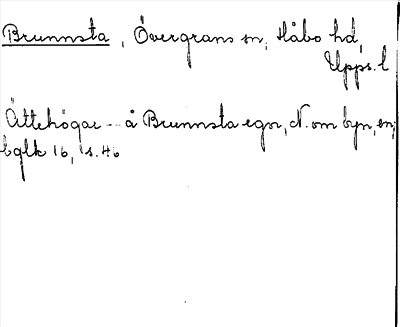 Brunnsta, Övergrans sn, Håbo hd,
Upps. l
Ättehögar -- å Brunnsta egor, N. om byn, en;
bglk 16, s. 46